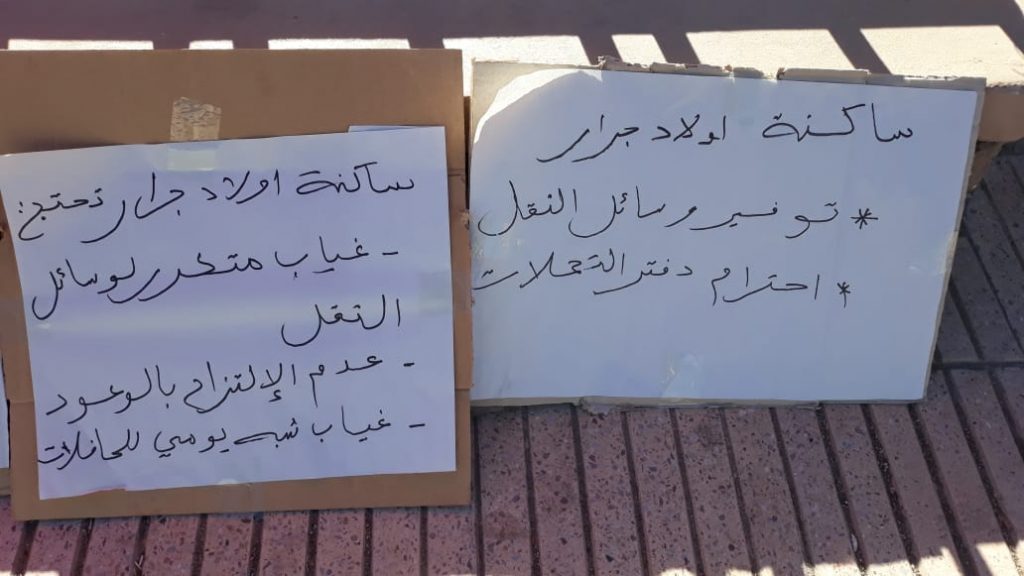 ساكنة اولاد جرار
* توفير وسائل النقل
* احترام دفتر التحملات
ساكنة اولاد جرار تحتج:
- غياب متكرر لوسائل
النقل
- عدم الإلتزام بالوعود
- غياب شبه يومي للحافلات